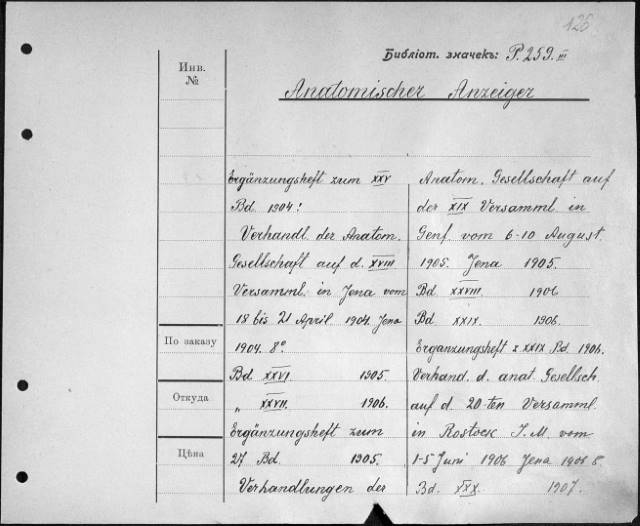 126
Библіот. значекъ: P. 259. III
Инв.
№
Anatomischer Anzeiger
Ergänzungsheft zum XXV
Bd. 1904:
Verhandl. der Anatom.
Gesellschaft auf d. XVIII
Versamml. in Jena vom
18 bis 21 April 1904. Jena
1904. 8°
Bd. XXVI. 1905.
„ XXVII. 1906.
Ergänzungsheft zum
27 Bd. 1905.
Verhandlungen der
Anatom. Gesellschaft auf
der XIX Versamml. in
Genf. vom 6-10 August.
1905. Jena 1905.
Bd. XXVIII. 1906
Bd. XXIX. 1906.
Ergänzungsheft z XXIX Bd. 1906.
Verhand. d. anat. Gesellsch.
auf d. 20-ten Versamml.
in Rostock I. M. vom
1-5 Juni 1906 Jena 1906 8.
Bd. XXX. 1907.
По заказу
Откуда
Цѣна